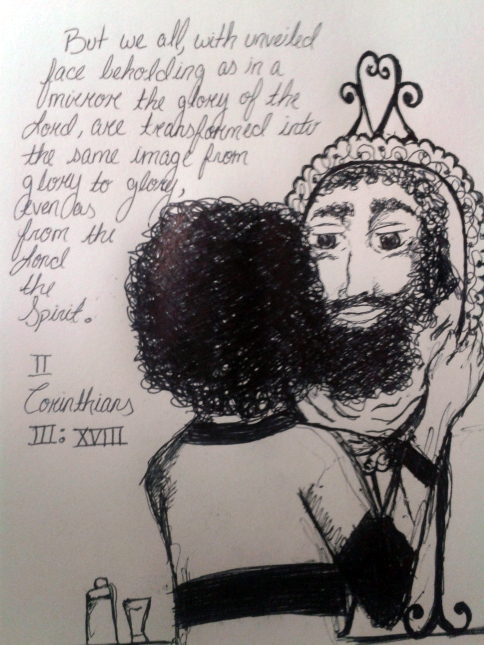 But we all, with unveiled
face beholding as in a
mirror the glory of the
Lord, are transformed into
the same image from
glory to glory,
even as
from the
Lord
the
Spirit.
II
Corinthians
III: XVIII